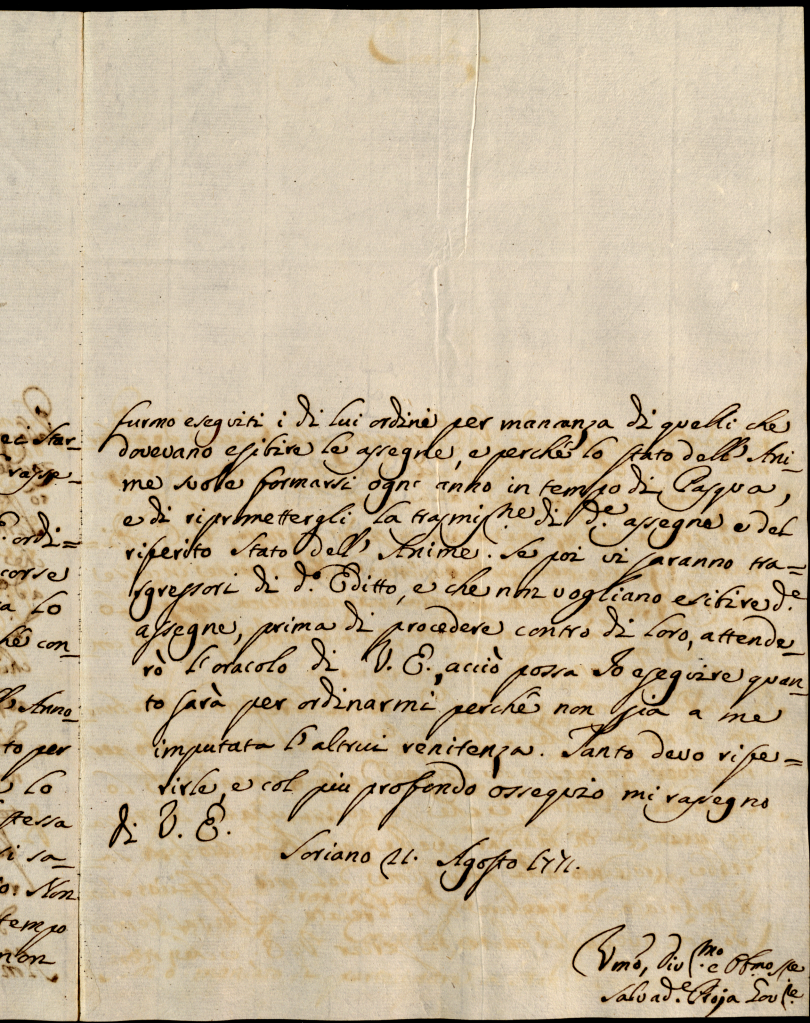 eci Star-
rasse-
E. ordi=
corse
a lo
hê con-
ll' Anno
to per
e lo
stessa
ti sa-
Non
tempo
non
furmo eseguiti i di lui ordini per mancanza di quelli che
dovevano esibire le assegne, e perchê lo stato dell' Ani-
me suole formarsi ogni anno in tempo di Pasqua,
e di ripromettergli la trasmis.ne di d.e assegne e del
riferito Stato dell' Anime. Se poi vi saranno tra=
sgressori di d.o Editto, e che non vogliano esibire d.e
assegne, prima di procedere contro di loro, attende-
rò l'oracolo di V. E., acciò possa Io eseguire quan-
to sarà per ordinarmi perchê non sia a me
imputata l'altrui renitenza. Tanto devo rife=
rirle, e col piu profondo ossequio mi rasegno
di V. E.
Soriano 21. Agosto 1771.
Vmo, Div.mo e Obmo
Salvad.e